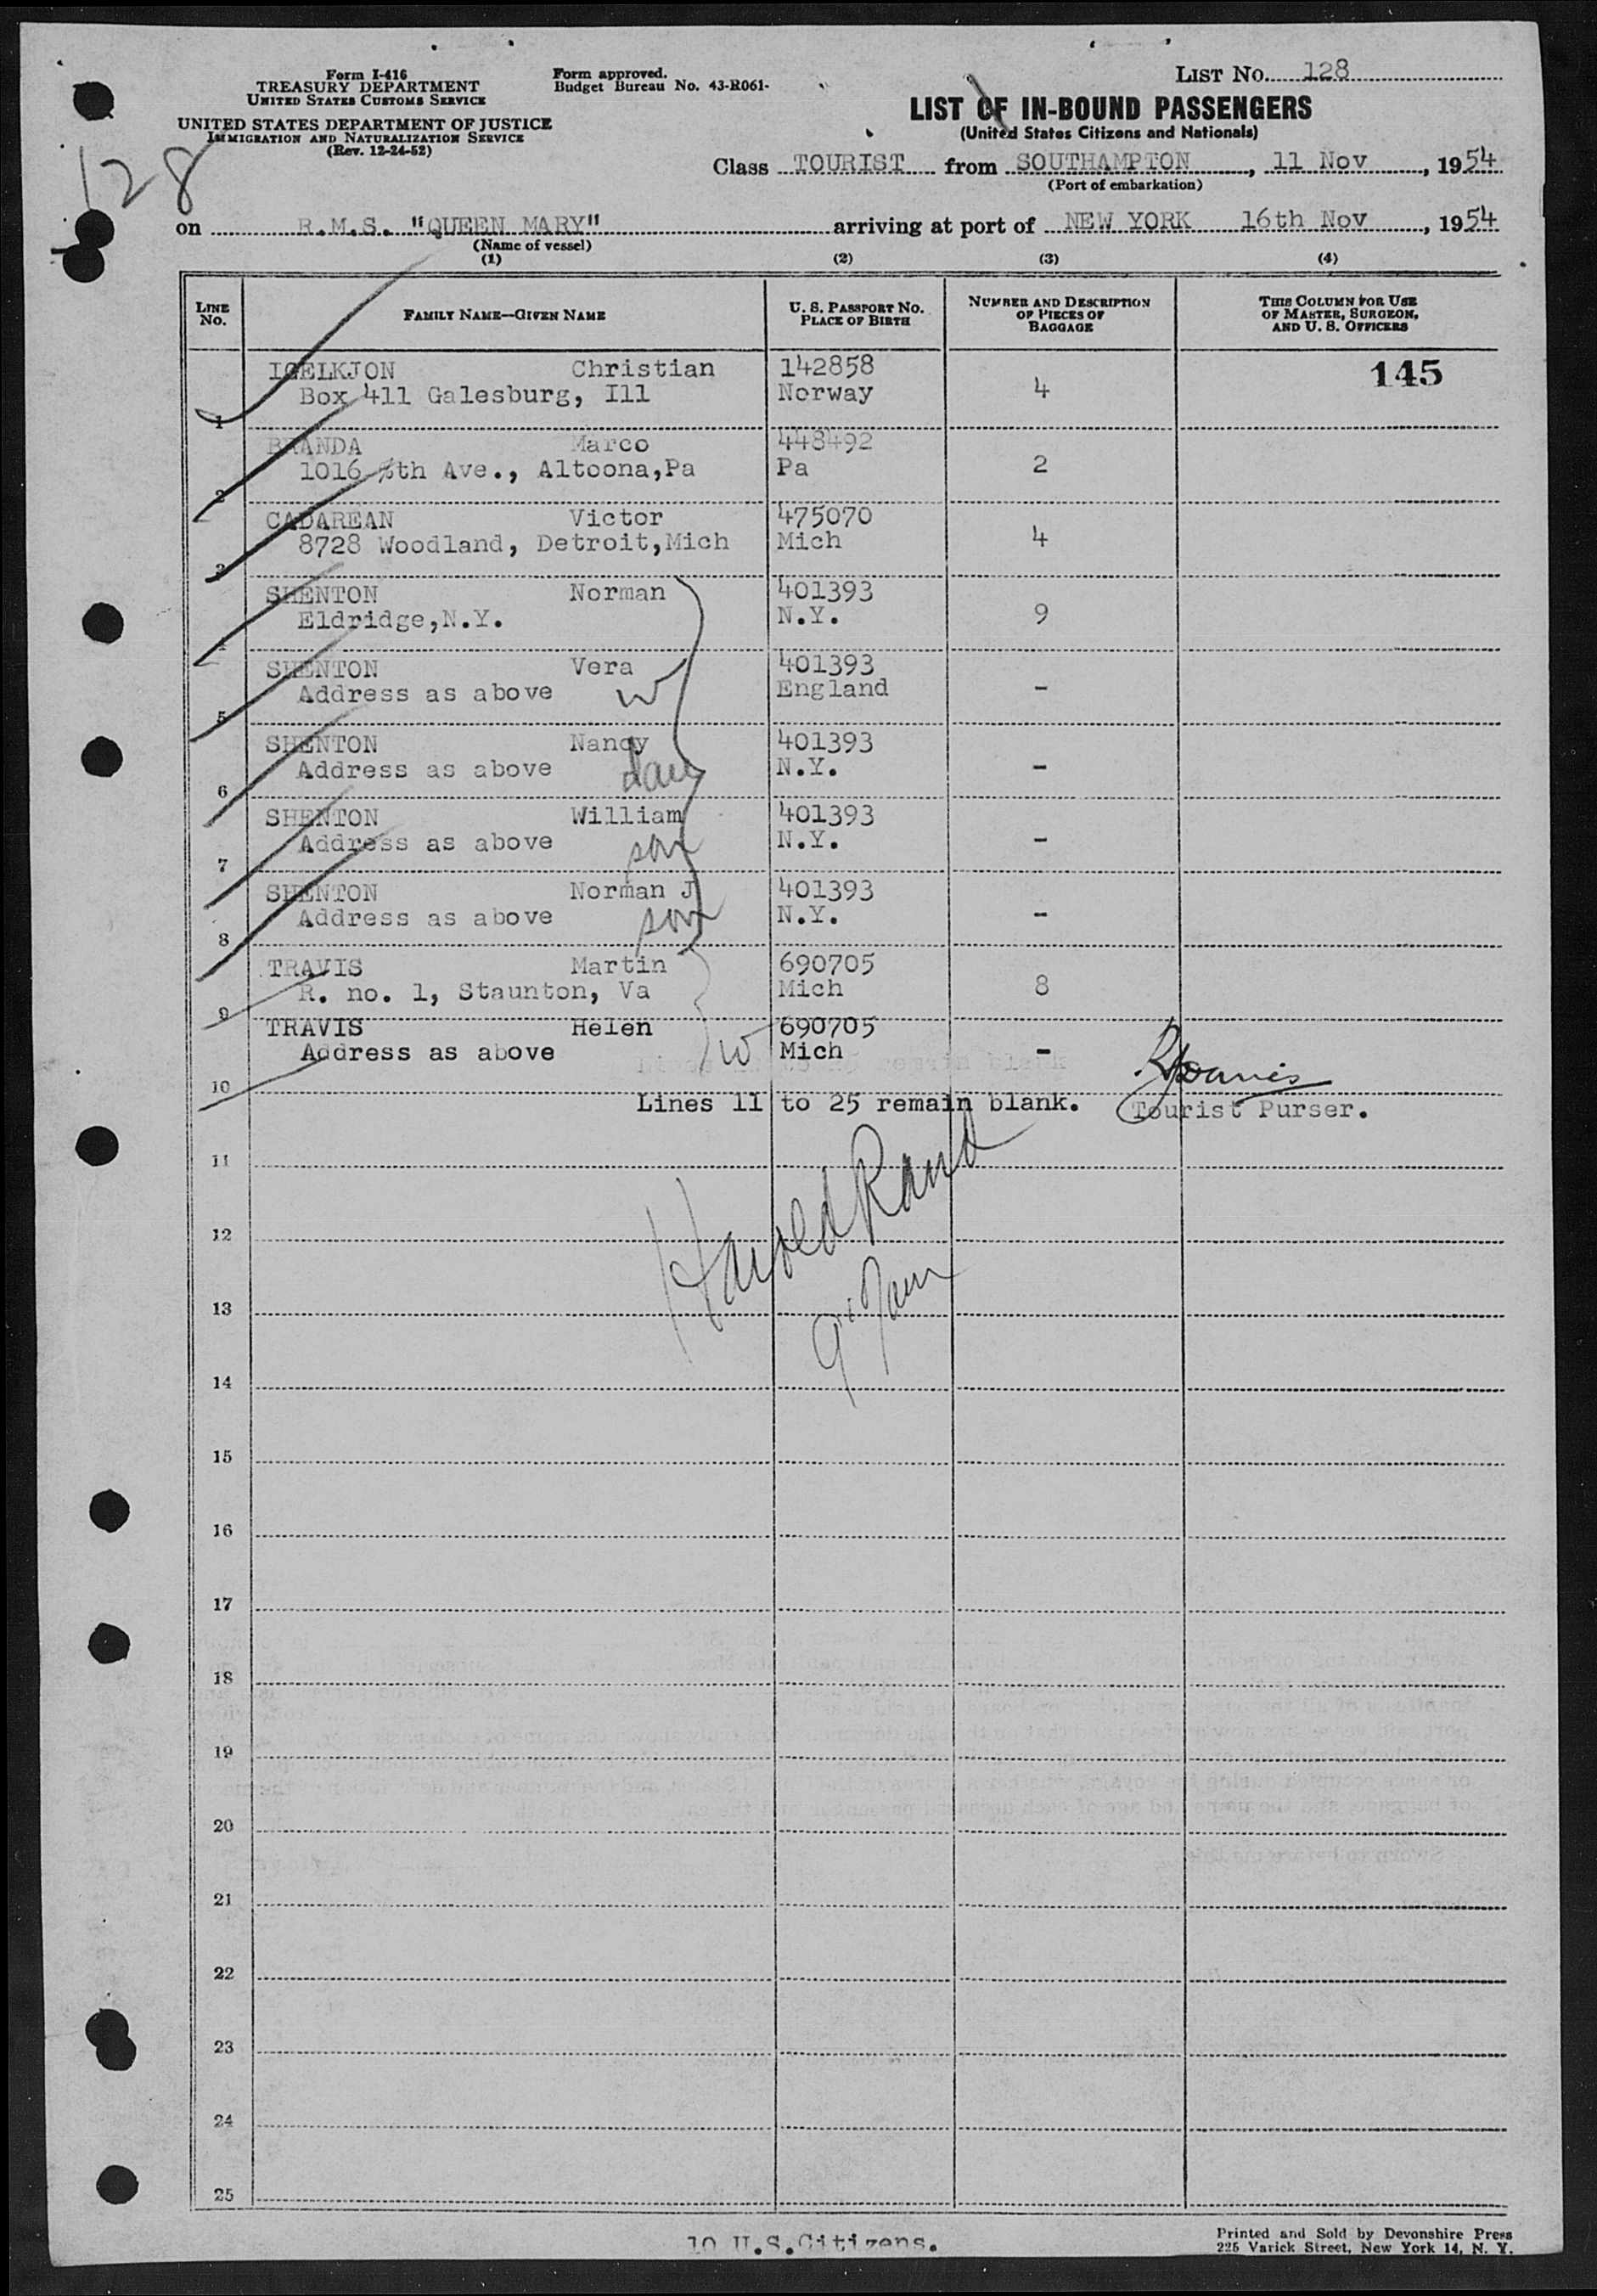 Form I-416
TREASURY DEPARTMENT
UNITED STATES CUSTOMS SERVICE
UNITED STATES DEPARTMENT OF JUSTICE
IMMIGRATION AND NATURALIZATION SERVICE
(Rev. 12-24-52)
Form approved.
Budget Bureau No. 43-R061-
LIST No. 128
LIST OF IN-BOUND PASSENGERS
(United States Citizens and Nationals)
128
Class TOURIST from SOUTHAMPTON, 11 Nov, 1954
(Port of embarkation)
on R.M.S. "QUEEN MARY" arriving at port of NEW YORK 16th Nov, 1954
(Name of vessel)
(1) (2) (3) (4)
LINE No. FAMILY NAME—GIVEN NAME U. S. PASSPORT No. PLACE OF BIRTH NUMBER AND DESCRIPTION OF PIECES OF BAGGAGE THIS COLUMN FOR USE OF MASTER, SURGEON, AND U. S. OFFICERS
IGELKJON Christian 142858 145
Box 411 Galesburg, Ill Norway 4
1
BRANDA Marco 448492
1016 8th Ave., Altoona,Pa Pa 2
2
CADAREAN Victor 475070
8728 Woodland, Detroit,Mich Mich 4
3
SHENTON Norman 401393
Eldridge,N.Y. N.Y. 9
4
SHENTON Vera 401393
Address as above w England -
5
SHENTON Nancy 401393
Address as above dau N.Y. -
6
SHENTON William 401393
Address as above son N.Y. -
7
SHENTON Norman J 401393
Address as above son N.Y. -
8
TRAVIS Martin 690705
R. no. 1, Staunton, Va Mich 8
9
TRAVIS Helen 690705
Address as above w Mich -
10
Lines 11 to 25 remain blank. Tourist Purser.
11
Harold Rand
12
13
14
15
16
17
18
19
20
21
22
23
24
25
10 U.S.Citizens.
Printed and Sold by Devonshire Press
225 Varick Street, New York 14, N. Y.